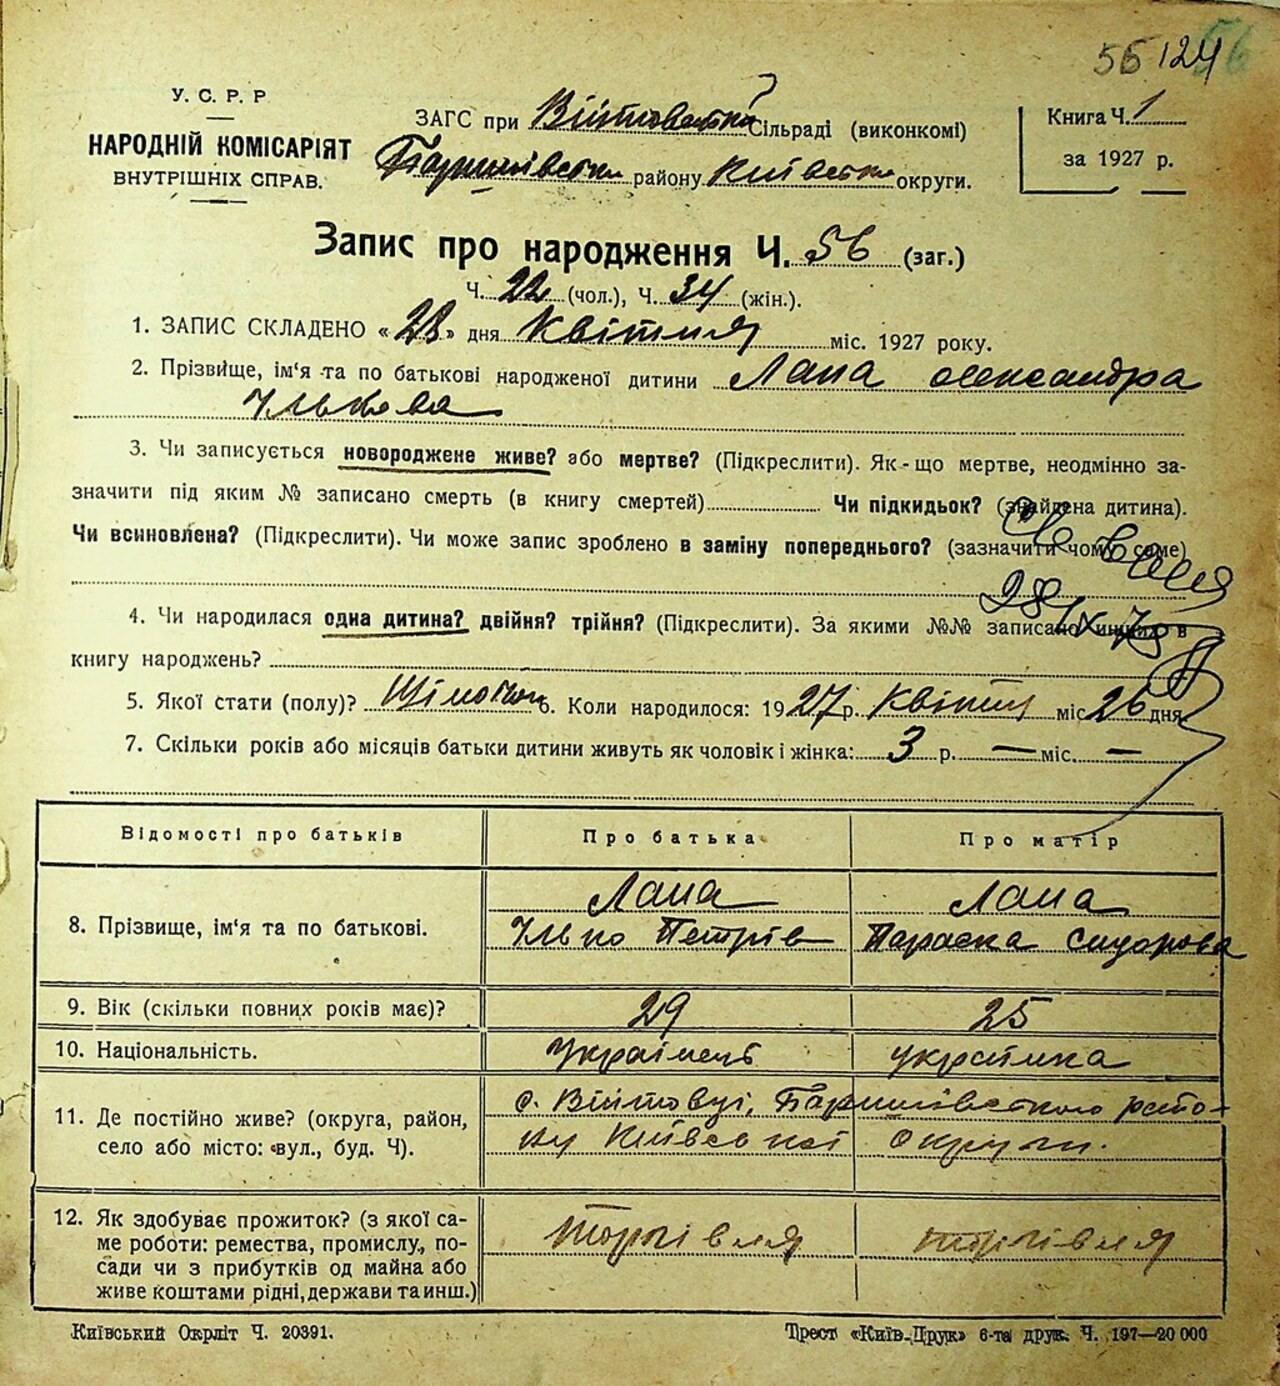 56 124 56
У. С. Р. Р
НАРОДНІЙ КОМІСАРІЯТ
ВНУТРІШНІХ СПРАВ.
ЗАГС при Війтовецькій Сільраді (виконкомі)
Баришівськ району Київськ округи.
Книга Ч. 1
за 1927 р.
Запис про народження Ч. 56 (заг.)
Ч. 22 (чол.), Ч. 34 (жін.).
1. ЗАПИС СКЛАДЕНО «28» дня Квітня міс. 1927 року.
2. Прізвище, ім‘я та по батькові народженої дитини Лапа Олександра
Ількова
3. Чи записується новороджене живе? або мертве? (Підкреслити). Як-що мертве, неодмінно за-
значити під яким № записано смерть (в книгу смертей) Чи підкидьок? (знайдена дитина).
Чи всиновлена? (Підкреслити). Чи може запис зроблено в заміну попереднього? (зазначити чому саме)
28/IX 73
4. Чи народилася одна дитина? двійня? трійня? (Підкреслити). За якими №№ записано инших в
книгу народжень?
5. Якої стати (полу)? Жіночої 6. Коли народилося: 1927 р. Квітня міс 26 дня
7. Скільки років або місяців батьки дитини живуть як чоловік і жінка: 3 р. — міс. —
Відомості про батьків Про батька Про матір
8. Прізвище, ім‘я та по батькові. Лапа Лапа
Ілько Петрів Параска Сидорова
9. Вік (скільки повних років має)? 29 25
10. Національність. Українець українка
11. Де постійно живе? (округа, район, с. Війтовці, Баришівського райо-
село або місто: вул., буд. Ч). ну Київської округи.
12. Як здобуває прожиток? (з якої са- торгівля торгівля
ме роботи: ремества, промислу, по-
сади чи з прибутків од майна або
живе коштами рідні, держави та инш.)
Київський Окрліт Ч. 20391.
Трест «Київ-Друк» 6-та друк. Ч. 197—20 000